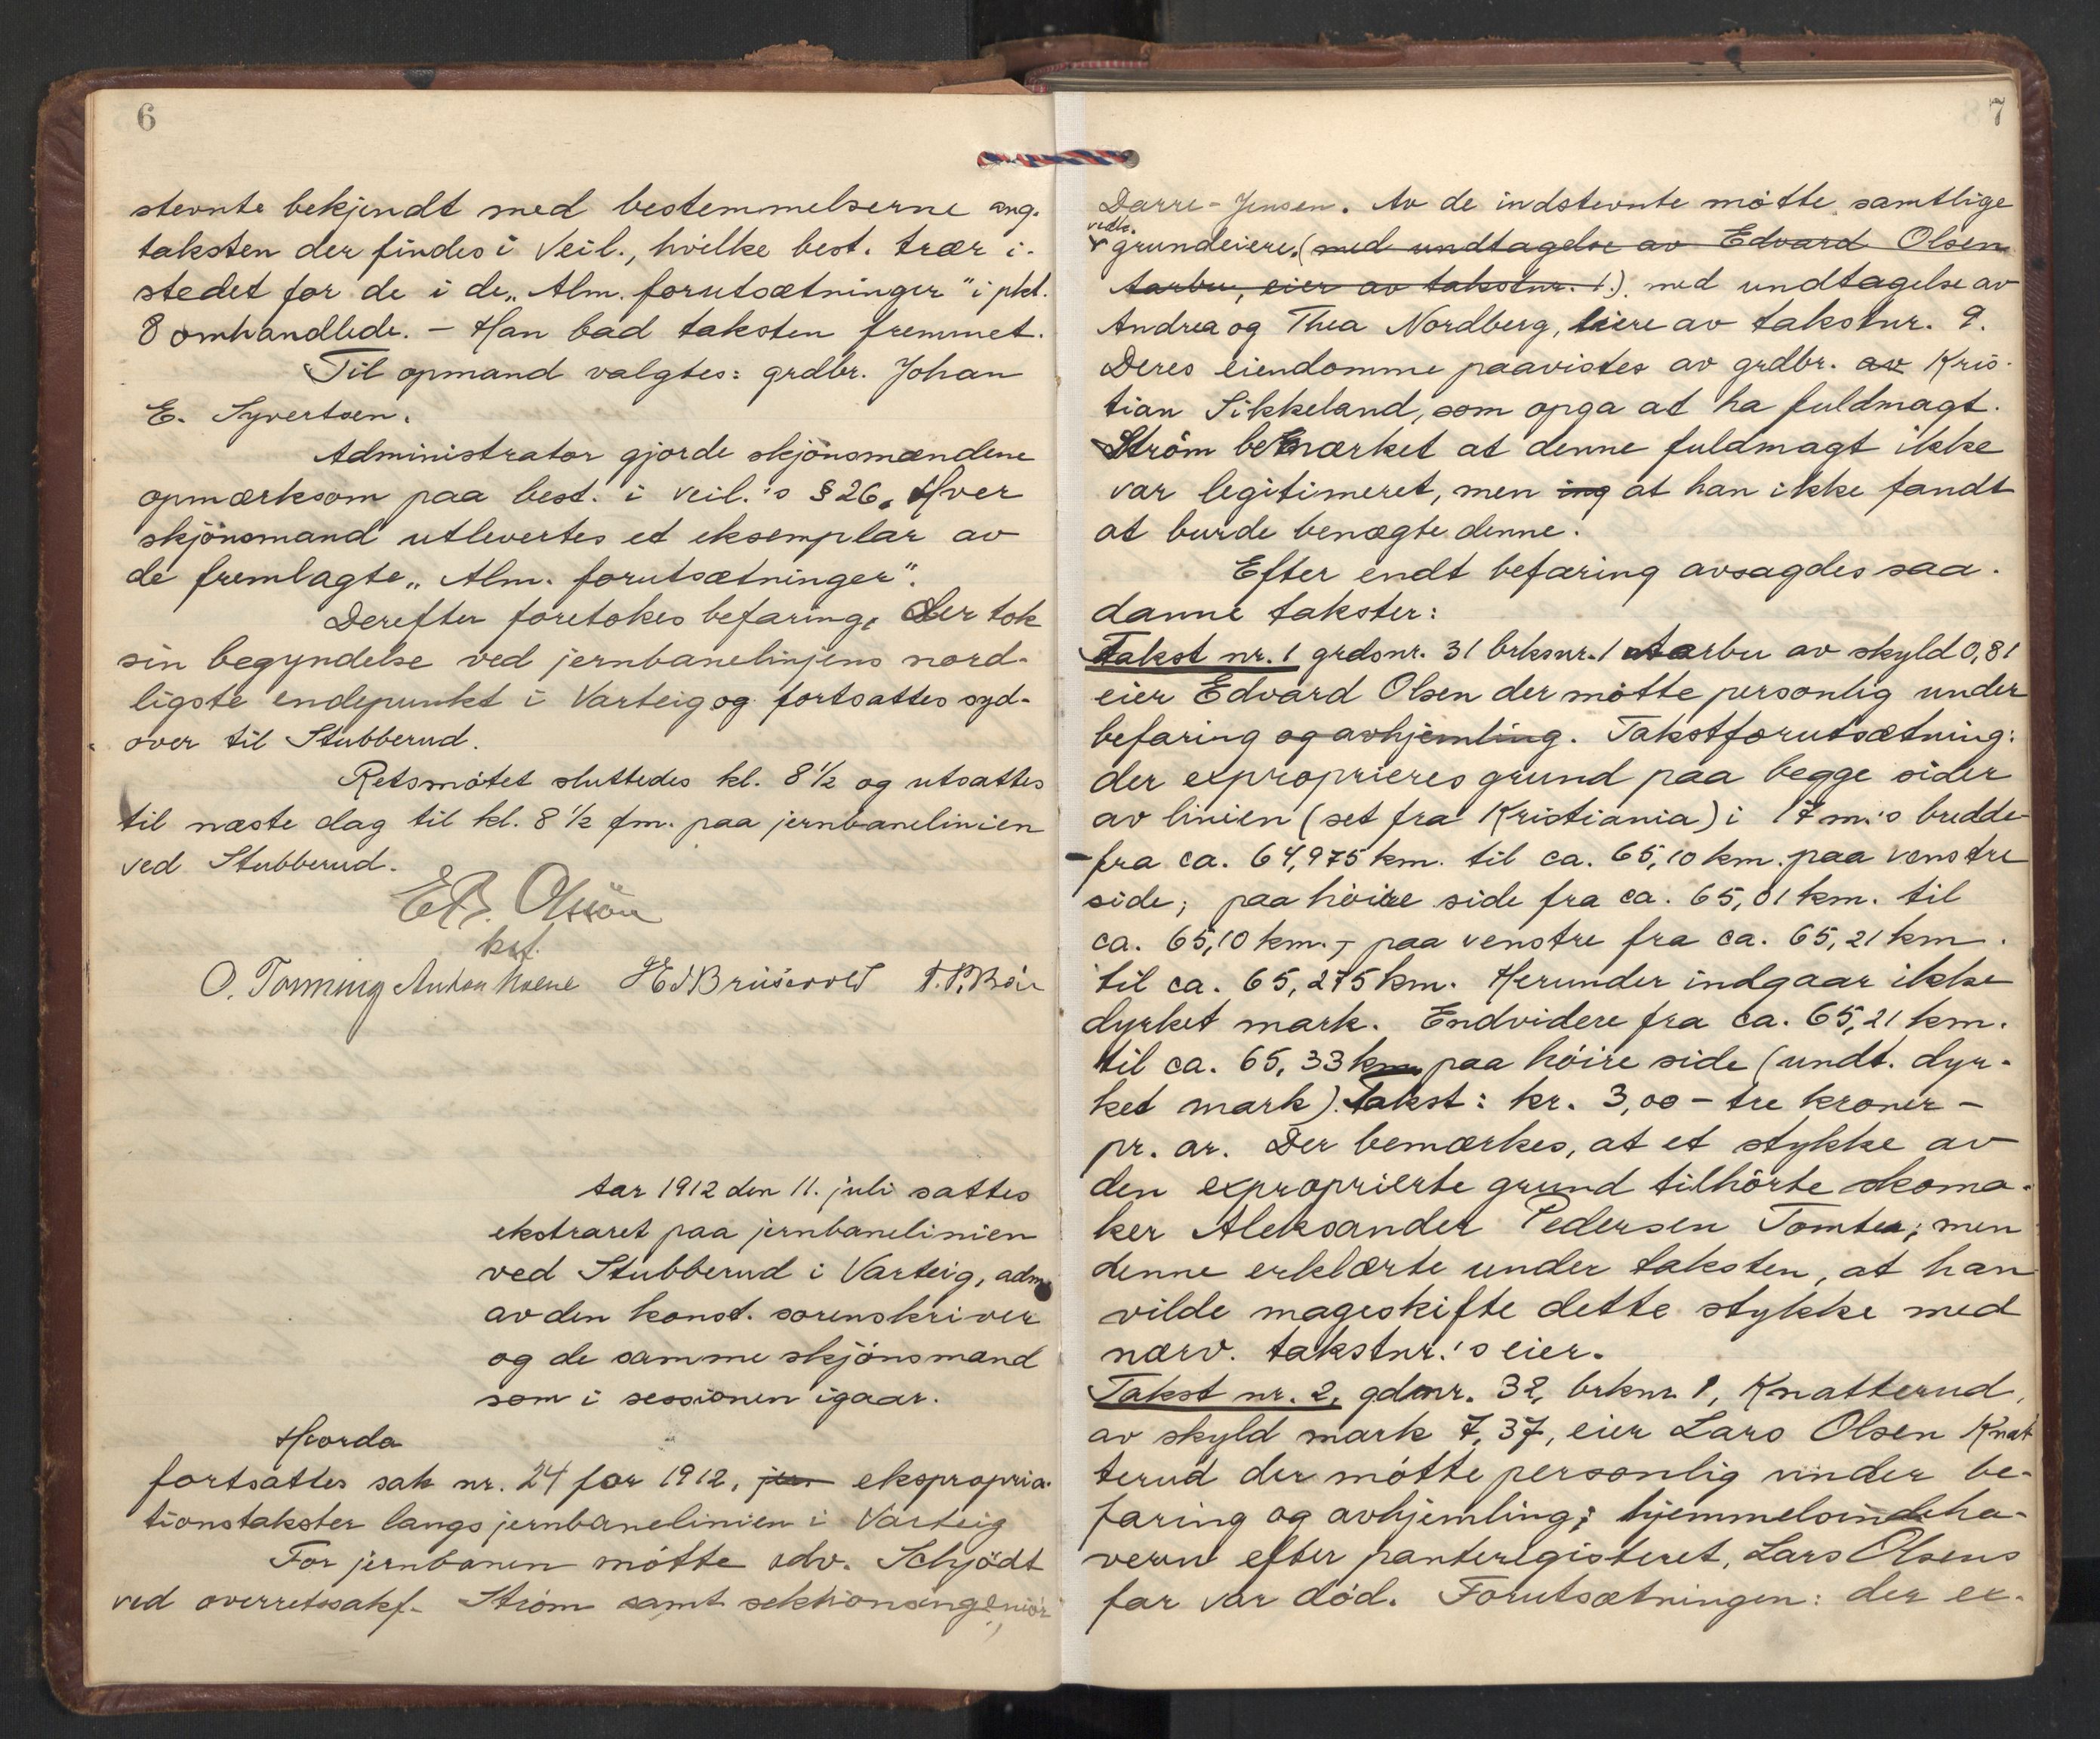 6
stevnte bekjendt med bestemmelserne ang.
taksten der findes i Veil., hvilke best. trær i-
stedet for de i de „Alm. forutsætninger" i pkt.
8 omhandlede. – Han bad taksten fremmet.
Til opmand valgtes: grdbr. Johan
E. Syvertsen.
Administrator gjorde skjönsmændene
opmærksom paa best. i veil.'s § 26. Hver
skjönsmand utlevertes et eksemplar av
de fremlagte „Alm. forutsætninger".
Derefter foretokes befaring. Der tok
sin begyndelse ved jernbanelinjens nord-
ligste endepunkt i Varteig og fortsattes syd-
over til Stubberud.
Retsmötet sluttedes kl. 8 ½ og utsattes
til næste dag til kl. 8 ½ fm. paa jernbanelinien
ved Stubberud.
E.B. Olssön
kst.
O. Tomming Anton Moene E Brüsevold T. P. Böe
Aar 1912 den 11. juli sattes
ekstraret paa jernbanelinien
ved Stubberud i Varteig, adm.
av den konst. sorenskriver
og de samme skjönsmænd
som i sessionen igaar.
Hvorda
fortsattes sak nr. 24 for 1912, jer ekspropria-
tionstakster langs jernbanelinien i Varteig
For jernbanen mötte adv. Schjödt
ved overretssakf. Ström samt sektionsingeniör
7
Darre-Jensen. Av de indstevnte mötte samtlige
vedk.
grundeiere. (med undtagelse av Edvard Olsen
Aarbu, eier av takstnr. 1.) med undtagelse av
Andrea og Thea Nordberg, eiere av takstnr. 9.
Deres eiendomme paavistes av grdbr. av Kris-
tian Sikkeland, som opga at ha fuldmagt.
Ström bemærket at denne fuldmagt ikke
var legitimeret, men ing at han ikke fandt
at burde benægte denne.
Efter endt befaring avsagdes saa-
danne takster:
Takst nr. 1 grdsnr. 31 brksnr. 1 Aarbu av skyld 0,81
eier Edvard Olsen der mötte personlig under
befaring og avhjemling. Takstforutsætning:
der exproprieres grund paa begge sider
av linien (set fra Kristiania) i 17 m.'s bredde
fra ca. 64,975 km. til ca. 65,10 km. paa venstre
side; paa höire side fra ca. 65,01 km. til
ca. 65,10 km., paa venstre fra ca. 65,21 km.
til ca. 65,275 km. Herunder indgaar ikke
dyrket mark. Endvidere fra ca. 65,21 km.
til ca. 65,33 km paa höire side (undt. dyr-
ket mark). Takst: kr. 3,00 – tre kroner –
pr. ar. Der bemærkes, at et stykke av
den exproprierte grund tilhörte skoma-
ker Aleksander Pedersen Tomta; men
denne erklærte under taksten, at han
vilde mageskifte dette stykke med
nærv. takstnr.'s eier.
Takst nr. 2, gdsnr. 32, brknr. 1, Knatterud,
av skyld mark 7,37, eier Lars Olsen Knat
terud der mötte personlig under be-
faring og avhjemling; hjemmelsindeha-
veren efter panteregisteret, Lars Olsens
far var död. Forutsætningen: der ex-